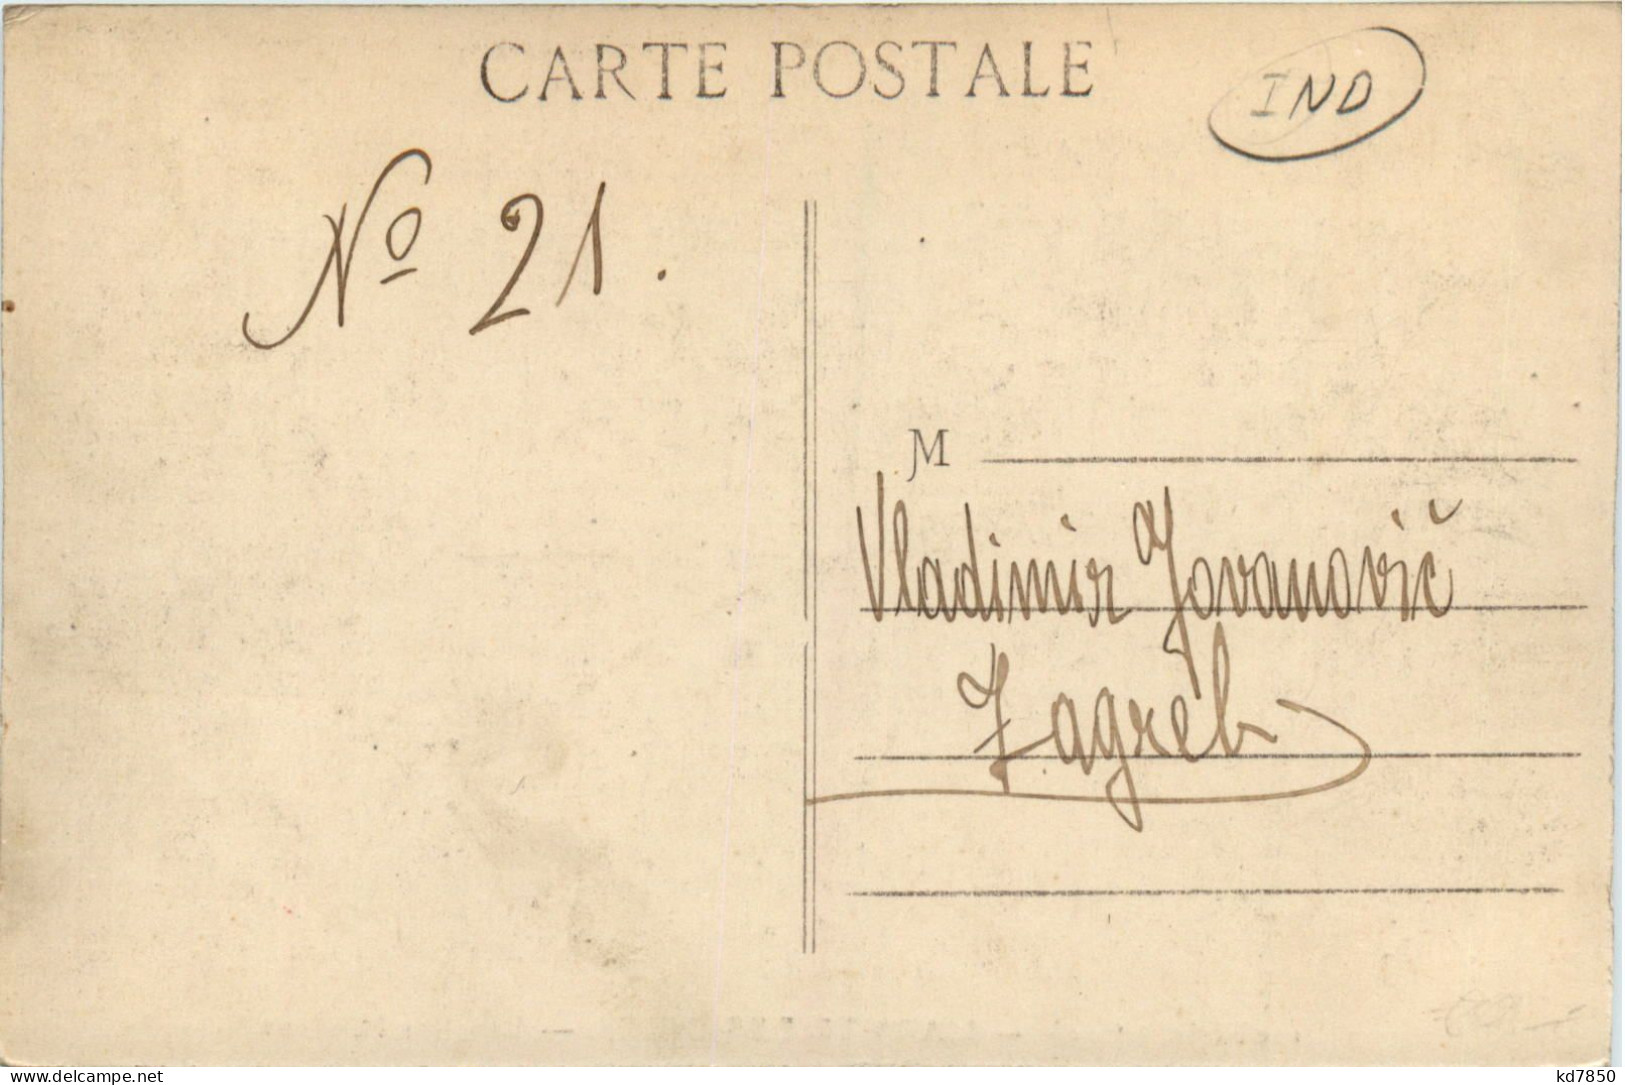 CARTE POSTALE
IND
Nº 21.
M
Vladimir Jovanovič
Zagreb
www.delcampe.net
kd7850